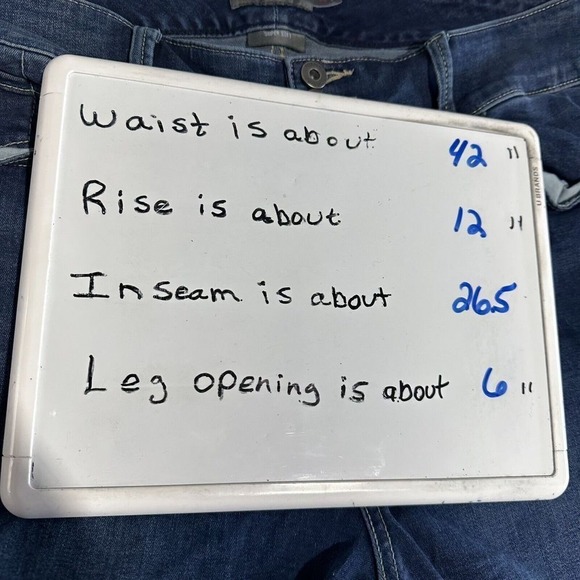 Waist is about 42 "
Rise is about 12 "
Inseam is about 26.5
Leg opening is about 6 "
U BRANDS